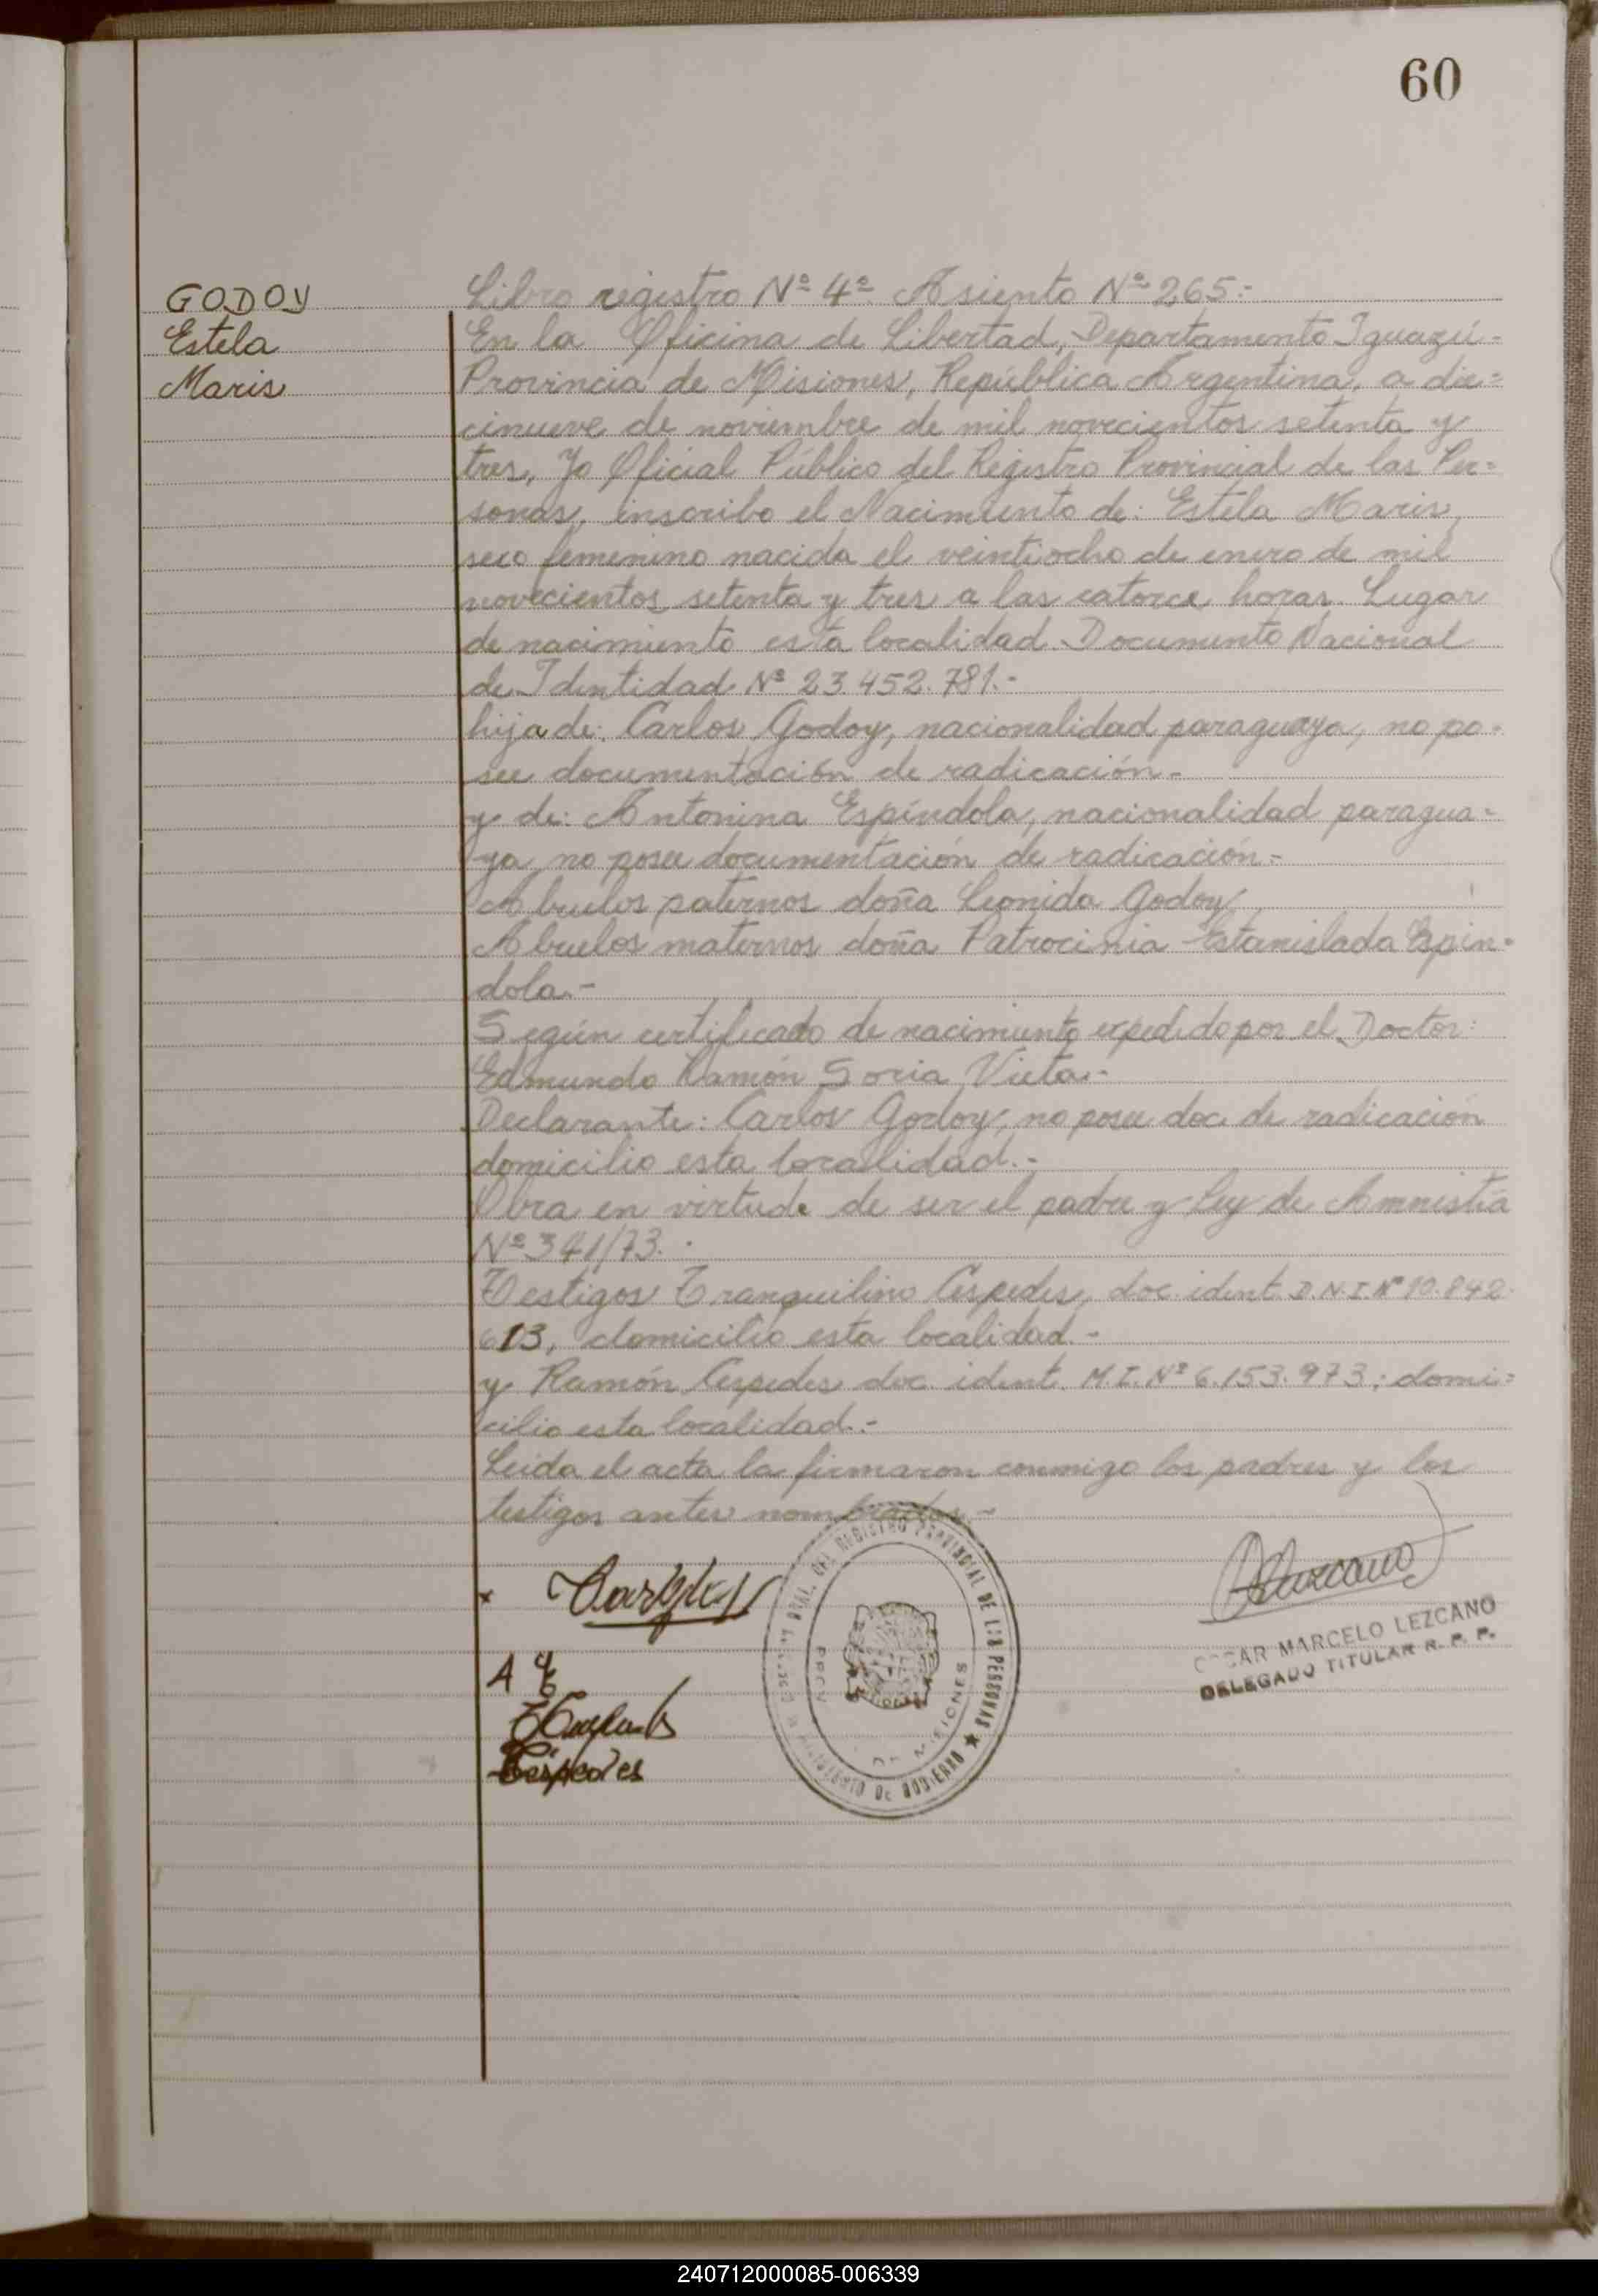 60
GODOY
Estela
Maris
Libro registro Nº 4º. Asiento Nº 265:-
En la Oficina de Libertad, Departamento Iguazú-
Provincia de Misiones, República Argentina, a die=
cinueve de noviembre de mil novecientos setenta y
tres, Yo Oficial Público del Registro Provincial de las Per=
sonas, inscribo el Nacimiento de: Estela Maris,
sexo femenino nacida el veintiocho de enero de mil
novecientos setenta y tres a las catorce horas. Lugar
de nacimiento esta localidad. Documento Nacional
de Identidad Nº 23.452.781.-
hija de: Carlos Godoy, nacionalidad paraguaya, no po-
see documentación de radicación.-
y de: Antonina Espíndola, nacionalidad paragua=
ya no posee documentación de radicación.-
Abuelos paternos doña Leonida Godoy
Abuelos maternos doña Patrocinia Estanislada Espin=
dola.-
Según certificado de nacimiento expedido por el Doctor:
Edmundo Ramón Soria Vieta.-
Declarante: Carlos Godoy, no posee doc. de radicación
domicilio esta localidad.-
Obra en virtude de ser el padre y Ley de Amnistía
Nº 341/73.-
Testigos Tranquilino Céspedes, doc. ident. D.N.I. Nº 10.842.
613, domicilio esta localidad.-
y Ramón Céspedes doc. ident. M.I. Nº 6.153.973; domi=
cilio esta localidad.-
Leida el acta la firmaron conmigo los padres y los
testigos antes nombrados.-
A E
Céspedes
GRAL. DEL REGISTRO PROVINCIAL DE LAS PERSONAS ★
DE GOBIERNO
PROV. DE MISIONES
OSCAR MARCELO LEZCANO
DELEGADO TITULAR R. P. P.
240712000085-006339